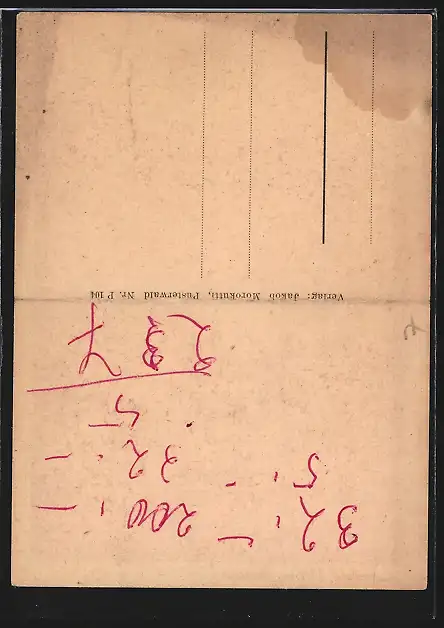 32,– 200,–
5,– 32.–
5–
237
Verlag: Jakob Morokutti, Pusterwald Nr. P 104